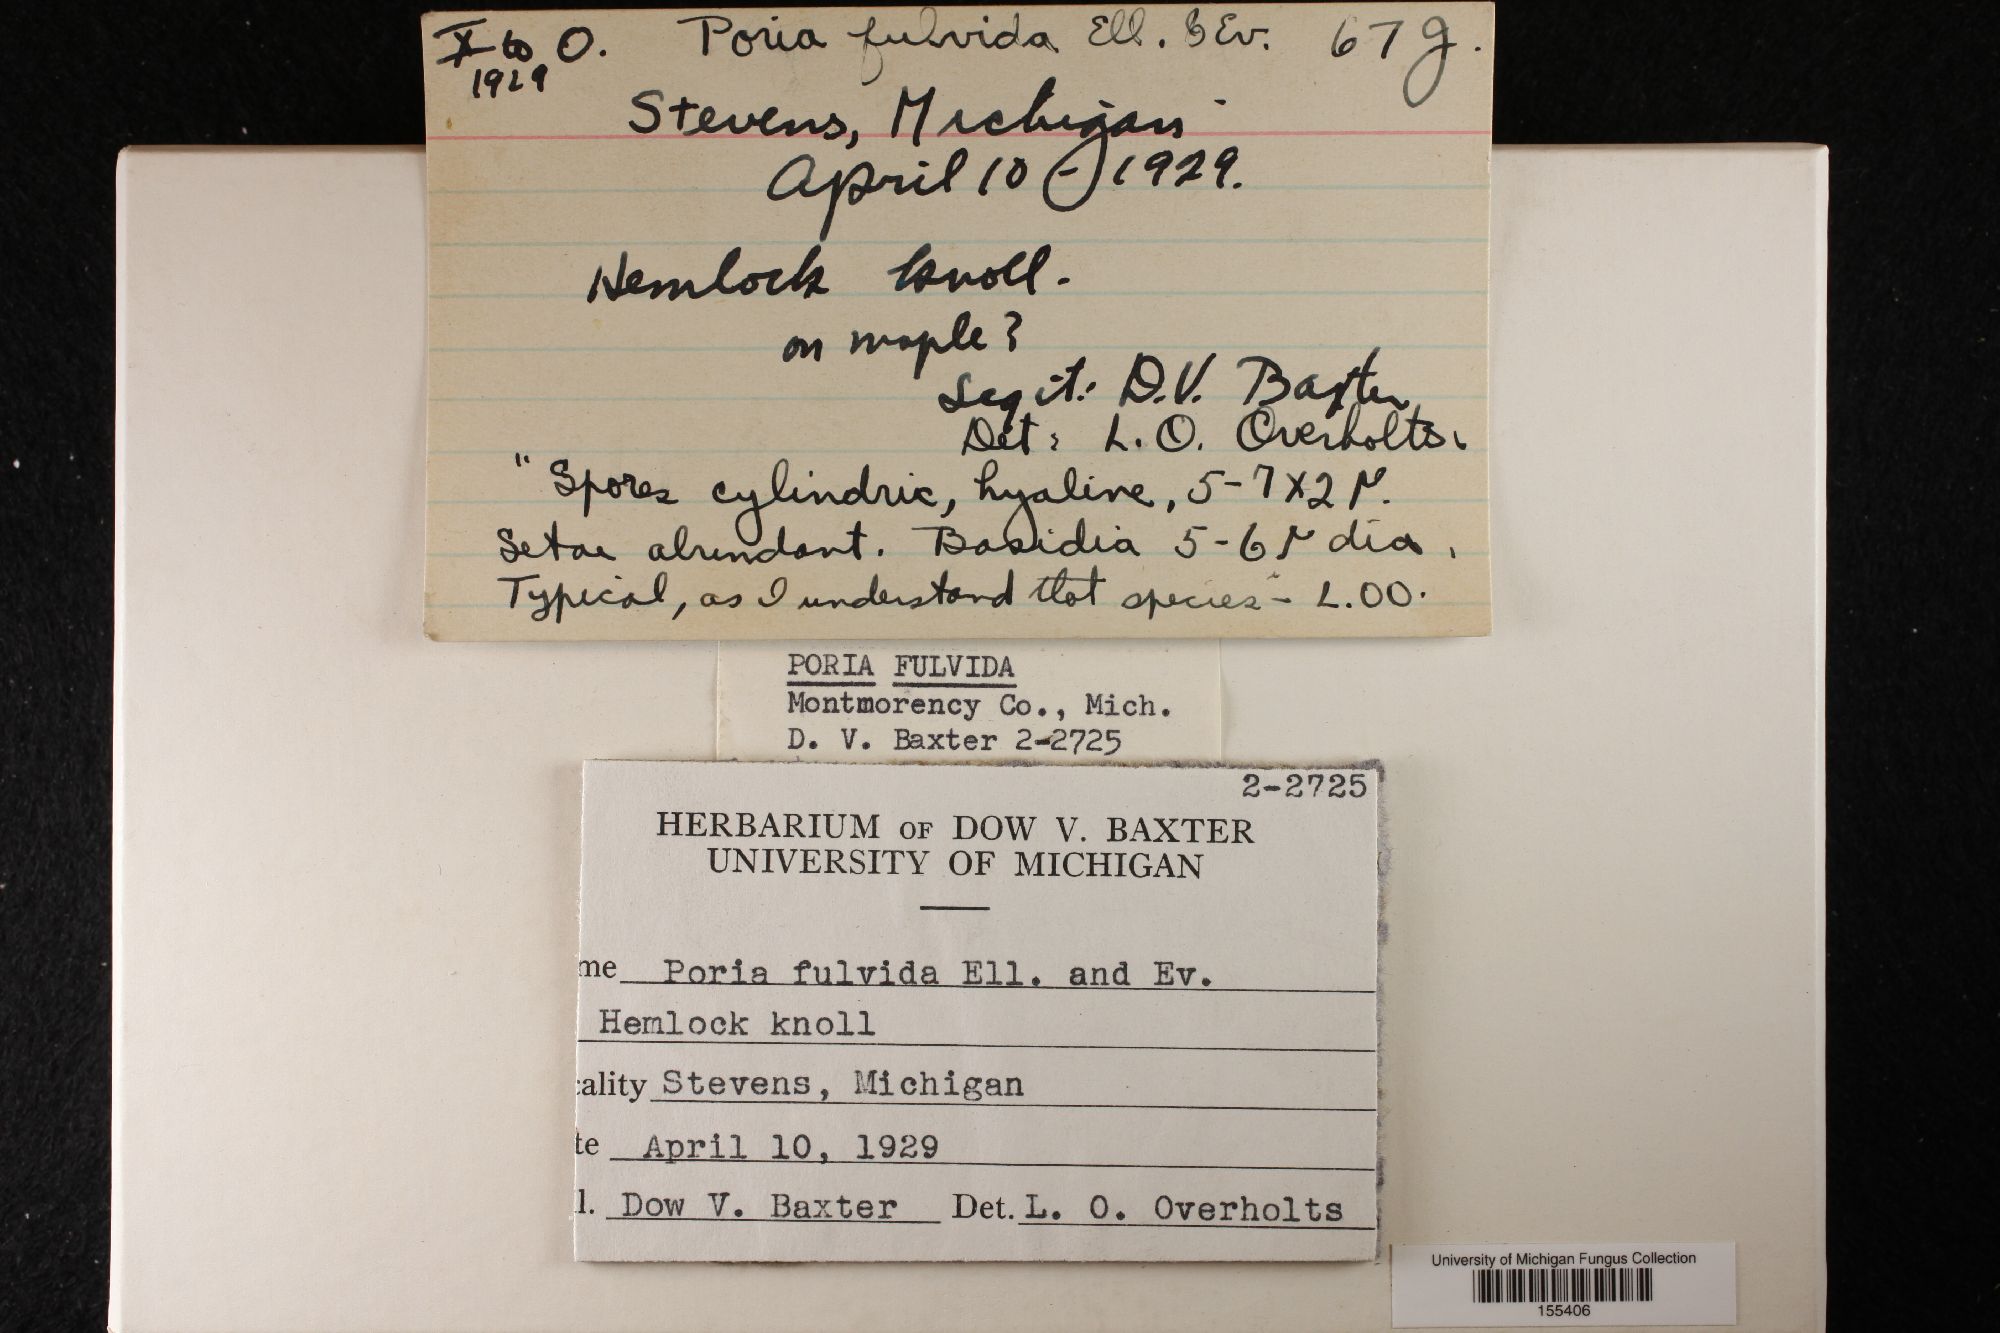 X to O. Poria fulvida Ell. & Ev. 67g.
1929
Stevens, Michigan
April 10 - 1929.
Hemlock knoll.
on maple?
Legit: D.V. Baxter
Det: L. O. Overholts.
"Spores cylindric, hyaline, 5-7X2 µ.
Setae abundant. Basidia 5-6 µ dia.
Typical, as I understand that species - L.O.O.
PORIA FULVIDA
Montmorency Co., Mich.
D. V. Baxter 2-2725
2-2725
HERBARIUM OF DOW V. BAXTER
UNIVERSITY OF MICHIGAN
me Poria fulvida Ell. and Ev.
Hemlock knoll
cality Stevens, Michigan
te April 10, 1929
l. Dow V. Baxter Det. L. O. Overholts
University of Michigan Fungus Collection
155406